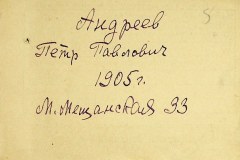 Андреев
Петр Павлович
1905 г.
М. Мещанская 33